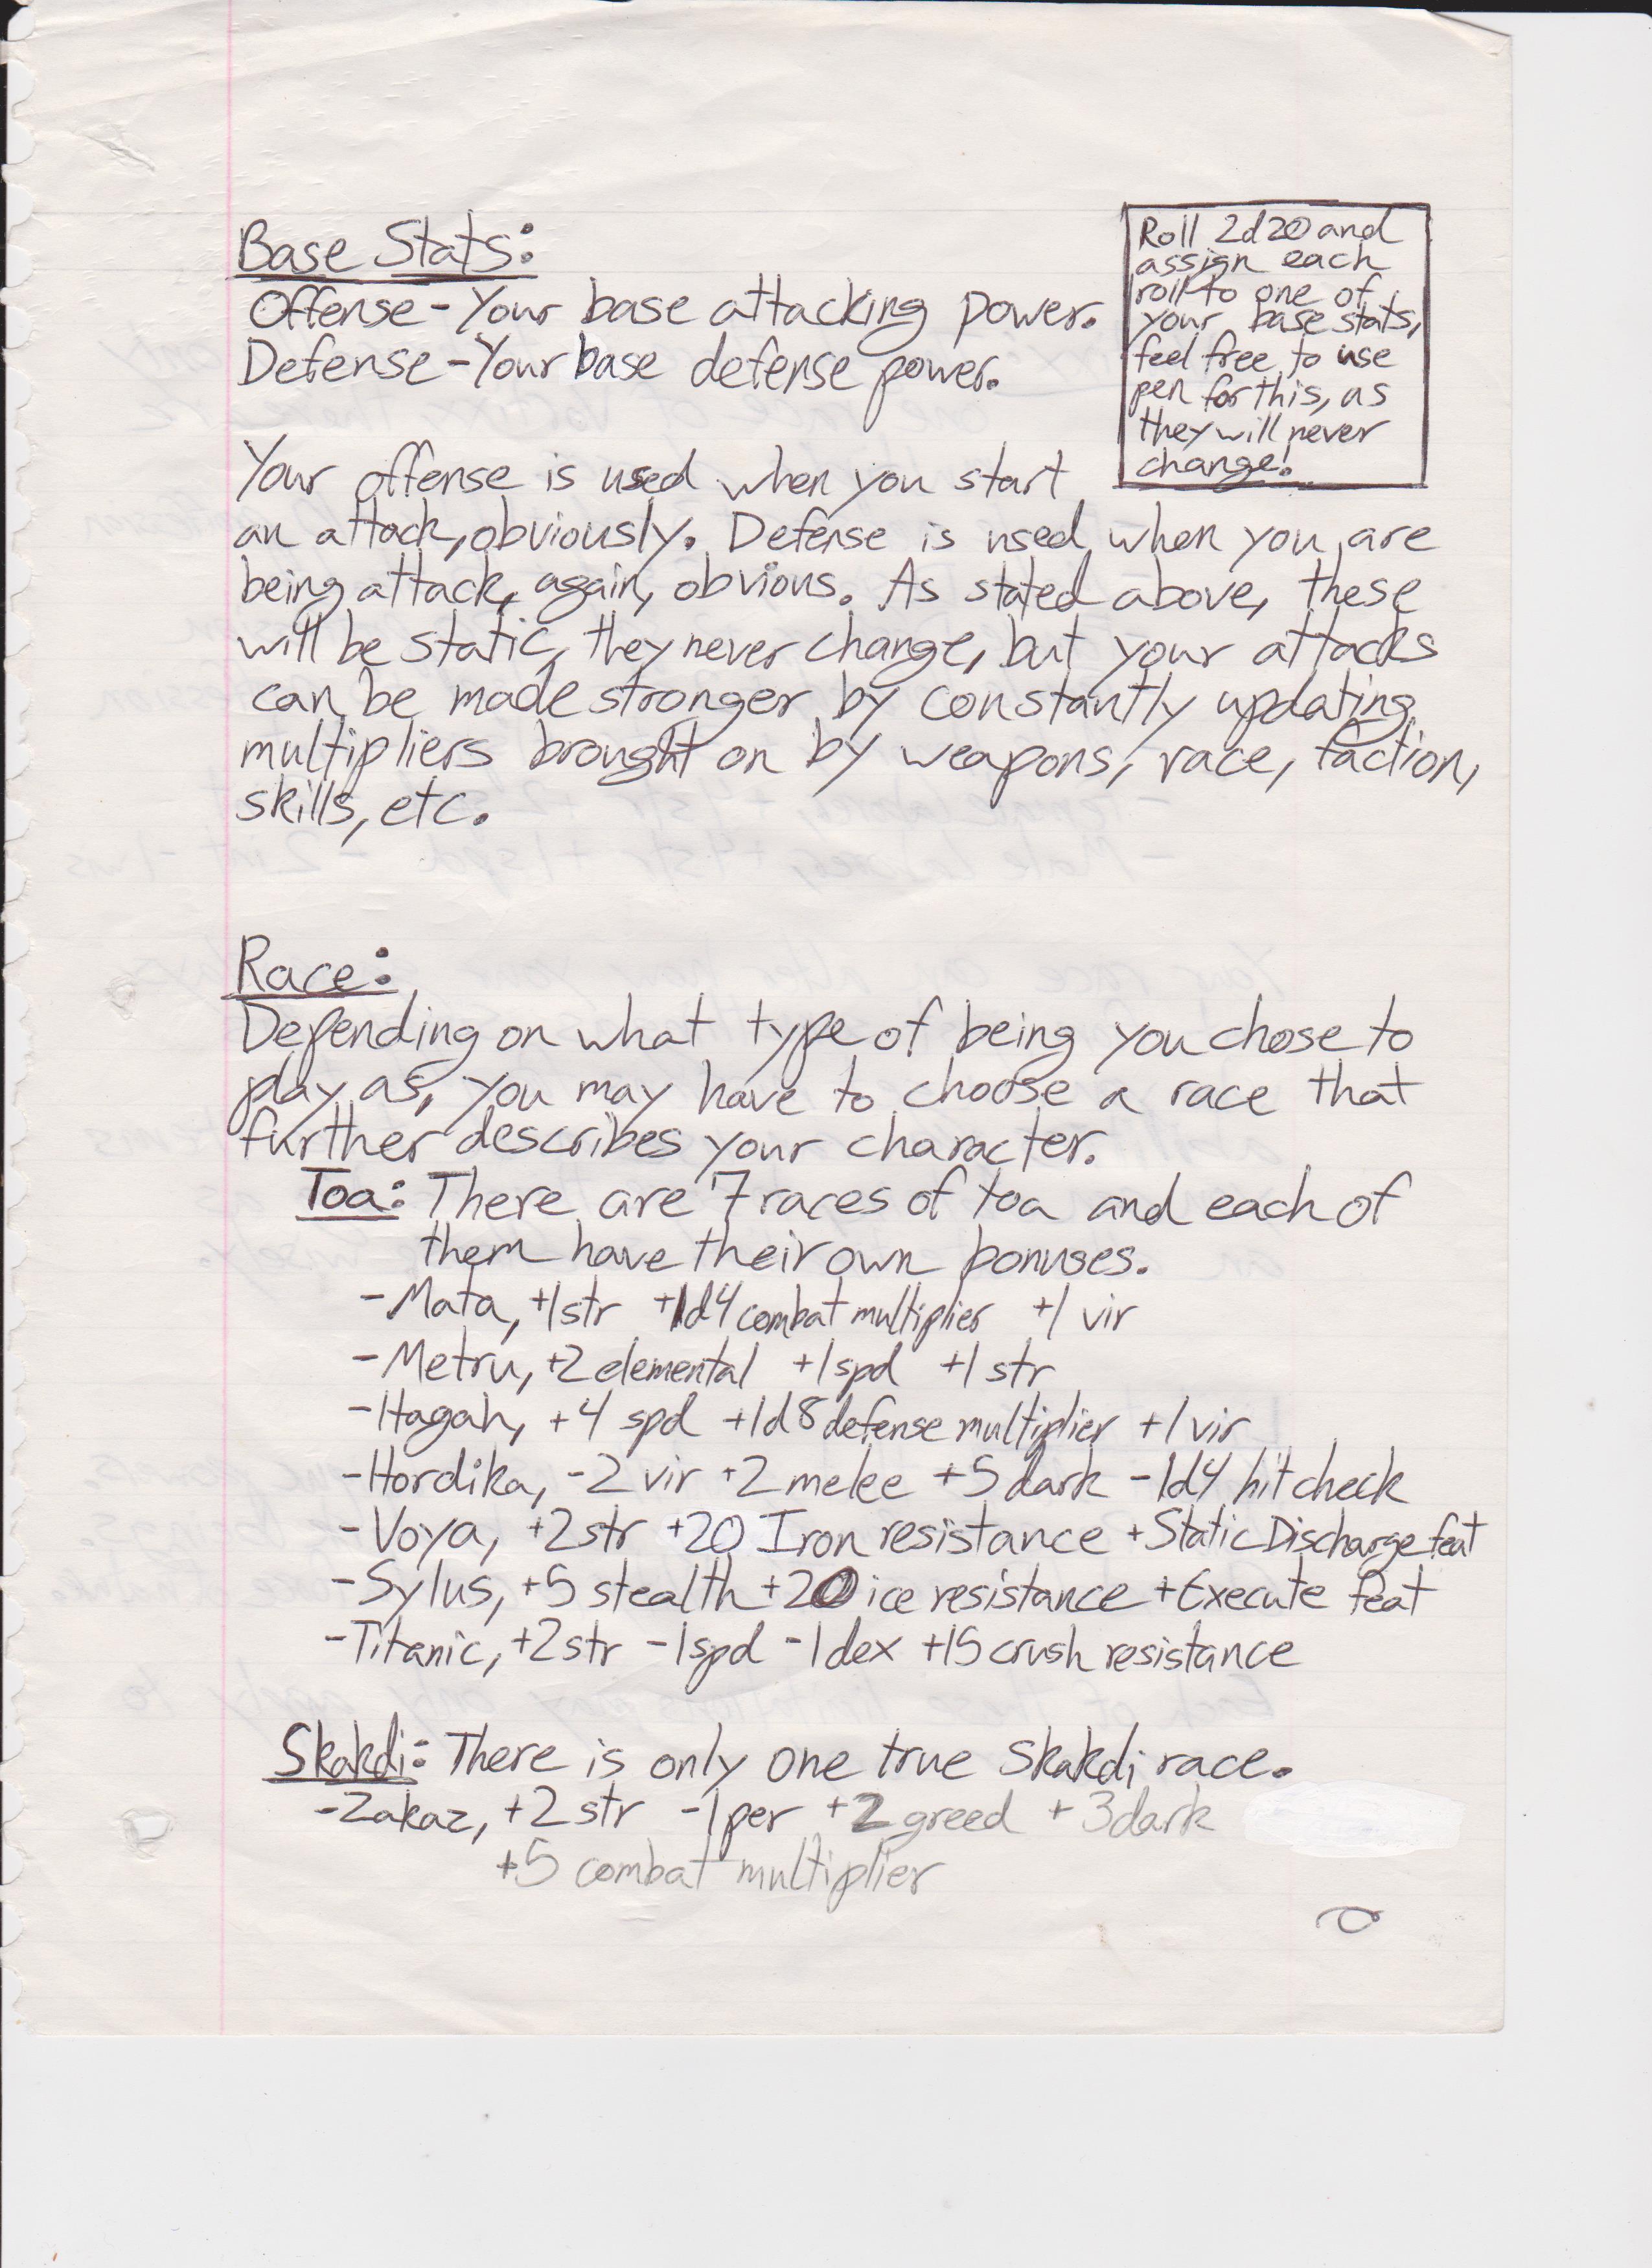 Base Stats:
Offense - Your base attacking power.
Defense - Your base defense power.
Roll 2d20 and
assign each
roll to one of
your base stats,
feel free to use
pen for this, as
they will never
change!
Your offense is used when you start
an attack, obviously. Defense is used when you are
being attack, again, obvious. As stated above, these
will be static, they never change, but your attacks
can be made stronger by constantly updating
multipliers brought on by weapons, race, faction,
skills, etc.
Race:
Depending on what type of being you chose to
play as, you may have to choose a race that
further describes your character.
Toa: There are 7 races of toa and each of
them have their own bonuses.
- Mata, +1 str +1d4 combat multiplier +1 vir
- Metru, +2 elemental +1 spd +1 str
- Hagah, +4 spd +1d8 defense multiplier +1 vir
- Hordika, -2 vir +2 melee +5 dark -1d4 hit check
- Voya, +2 str +20 Iron resistance + Static Discharge feat
- Sylus, +5 stealth +20 ice resistance + Execute feat
- Titanic, +2 str -1 spd -1 dex +15 crush resistance
Skakdi: There is only one true Skakdi race.
- Zakaz, +2 str -1 per +2 greed +3 dark
+5 combat multiplier